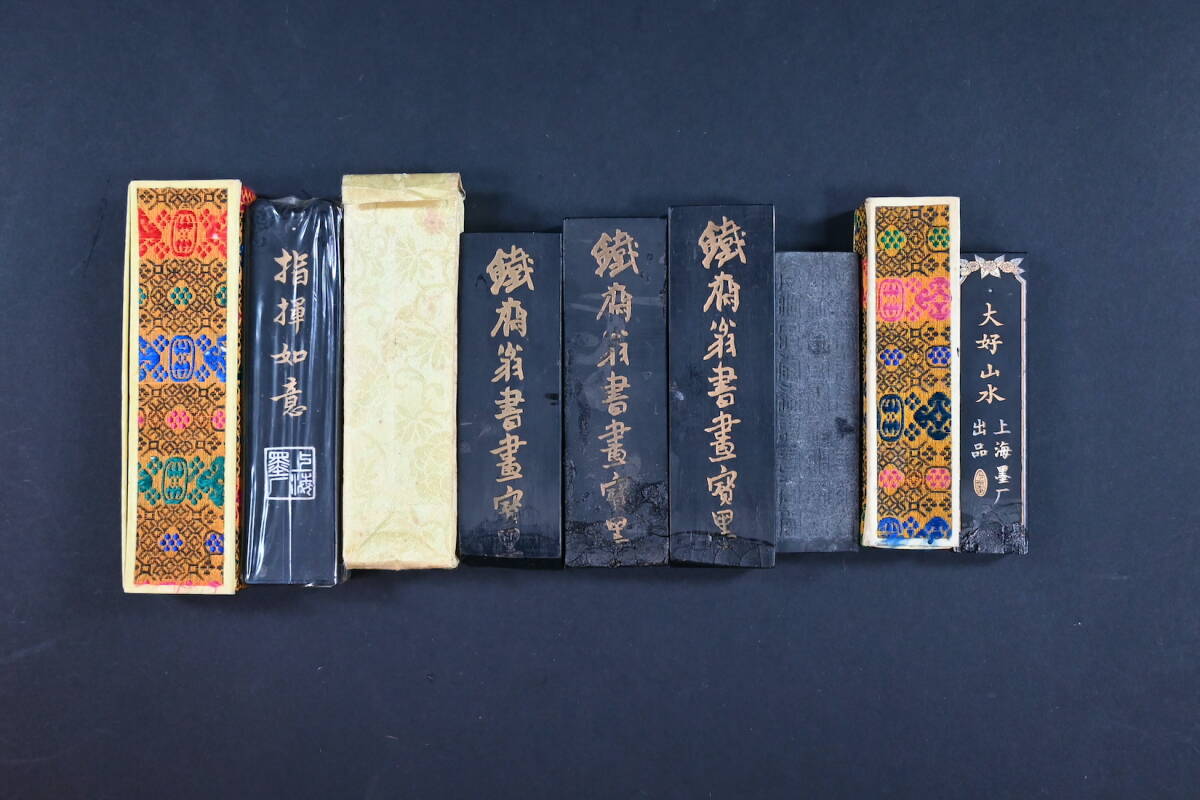 指揮如意
上海墨厂
鐵齋翁書畫寶墨
鐵齋翁書畫寶墨
鐵齋翁書畫寶墨
大好山水
上海墨厂
出品